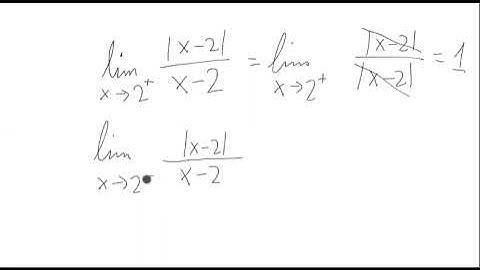 lim x→2⁺ |x-2|/(x-2) = lim x→2⁺ |x-2|/|x-2| = 1
lim x→2 |x-2|/(x-2)